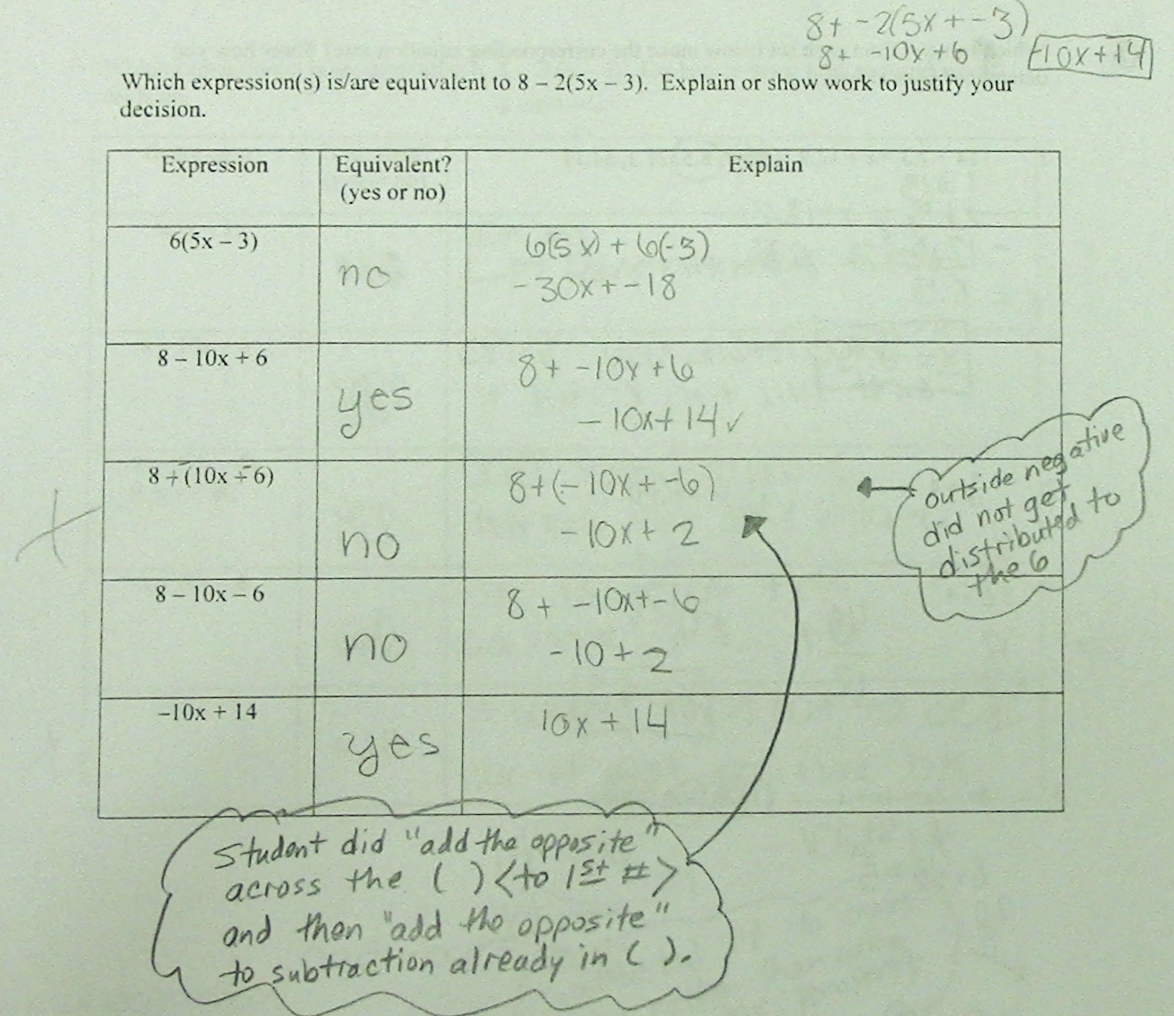 8 + -2(5x + -3)
8 + -10x + 6
-10x + 14
Which expression(s) is/are equivalent to 8 – 2(5x – 3).  Explain or show work to justify your
decision.
Expression
Equivalent?
(yes or no)
Explain
6(5x – 3)
no
6(5x) + 6(-3)
-30x + -18
8 – 10x + 6
yes
8 + -10x + 6
- 10x + 14 ✓
8 + -(10x + -6)
no
8 + (-10x + -6)
- 10x + 2
8 – 10x – 6
no
8 + -10x + -6
-10 + 2
–10x + 14
yes
10x + 14
outside negative
did not get
distributed to
the 6
Student did "add the opposite"
across the ( ) <to 1st #>
and then "add the opposite"
to subtraction already in ( ).